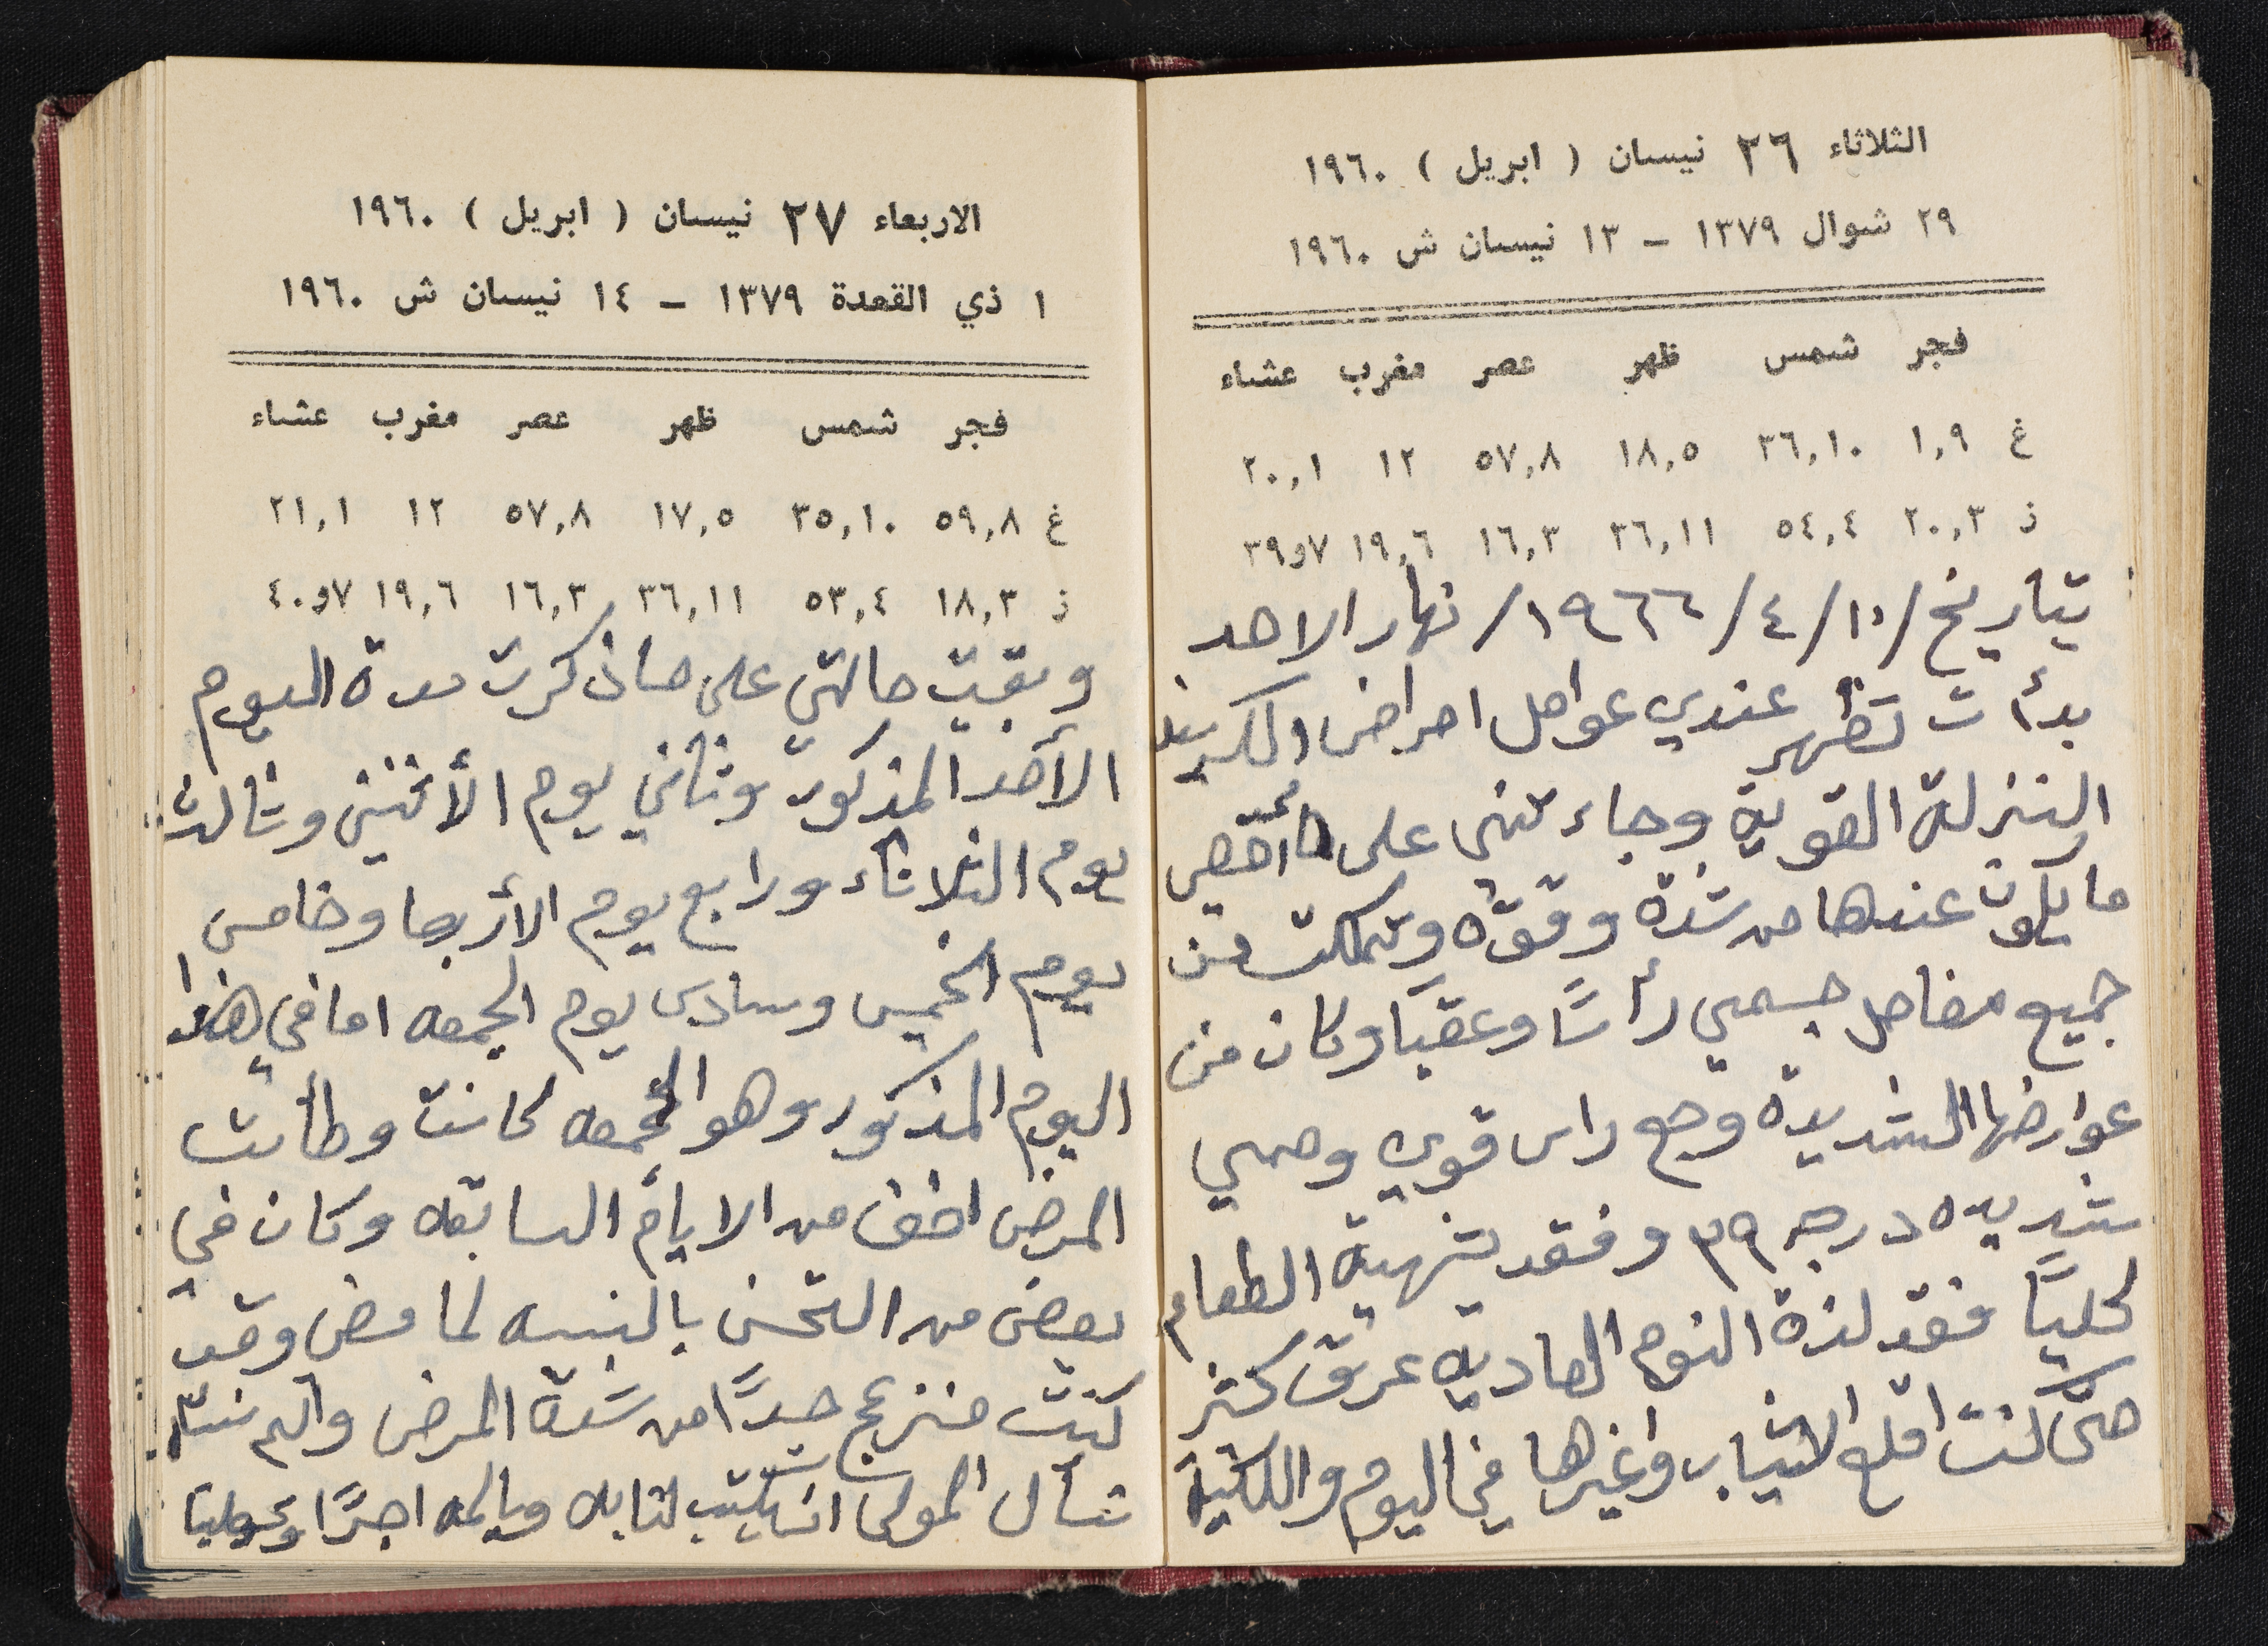 الثلاثاء ٢٦ نيسان ( ابريل ) ١٩٦٠
٢٩ شوال ١٣٧٩ – ١٣ نيسان ش ١٩٦٠
فجر شمس ظهر عصر مغرب عشاء
غ ١,٩ ٣٦,١٠ ١٨,٥ ٥٧,٨ ١٢ ٢٠,١
ز ٢٠,٣ ٥٤,٤ ٣٦,١١ ١٦,٣ ١٩,٦ ٧و٣٩
بتاريخ /١٠/٤/١٩٦٦/ نهار الاحد
بدأت تظهر عندي عوامل امراض الكريب
النزلة القوية وجاءتني على
ما يكون عندها من شدة وقوّة وتمكنت من
جميع مفاصل جسمي رأسًا وعقبًا وكان من
عوارضها الشديدة وجع راس قوي وحمي
شديده درجه ٣٩ وفقد شهية الطعام
كليًا فقد لذة النوم العاديه عرق كثر
حتى كنت اقلع الاثياب واغيرها في اليوم والليلة
الاربعاء ٢٧ نيسان ( ابريل ) ١٩٦٠
١ ذي القعدة ١٣٧٩ – ١٤ نيسان ش ١٩٦٠
فجر شمس ظهر عصر مغرب عشاء
غ ٥٩,٨ ٣٥,١٠ ١٧,٥ ٥٧,٨ ١٢ ٢١,١
ز ١٨,٣ ٥٣,٤ ٣٦,١١ ١٦,٣ ١٩,٦ ٧و٤٠
وبقيت حالتي على ماذكرت مدة اليوم
الأحد المذكور وثاني يوم الأثنين وثالث
يوم الثلاثاء ورابع يوم الأربعا وخامس
يوم الخميس وسادس يوم الجمعه اما في هذا
اليوم المذكور وهو الجمعه كانت وطأت
المرض اخف من الايام السابقه وكان في
بعض من التحسن بالنسبه لما مضى وقد
كنت منزعج جدًا من شدة المرض وألم
نسأل المولى ان يكتب لنا به وبألمه اجرًا